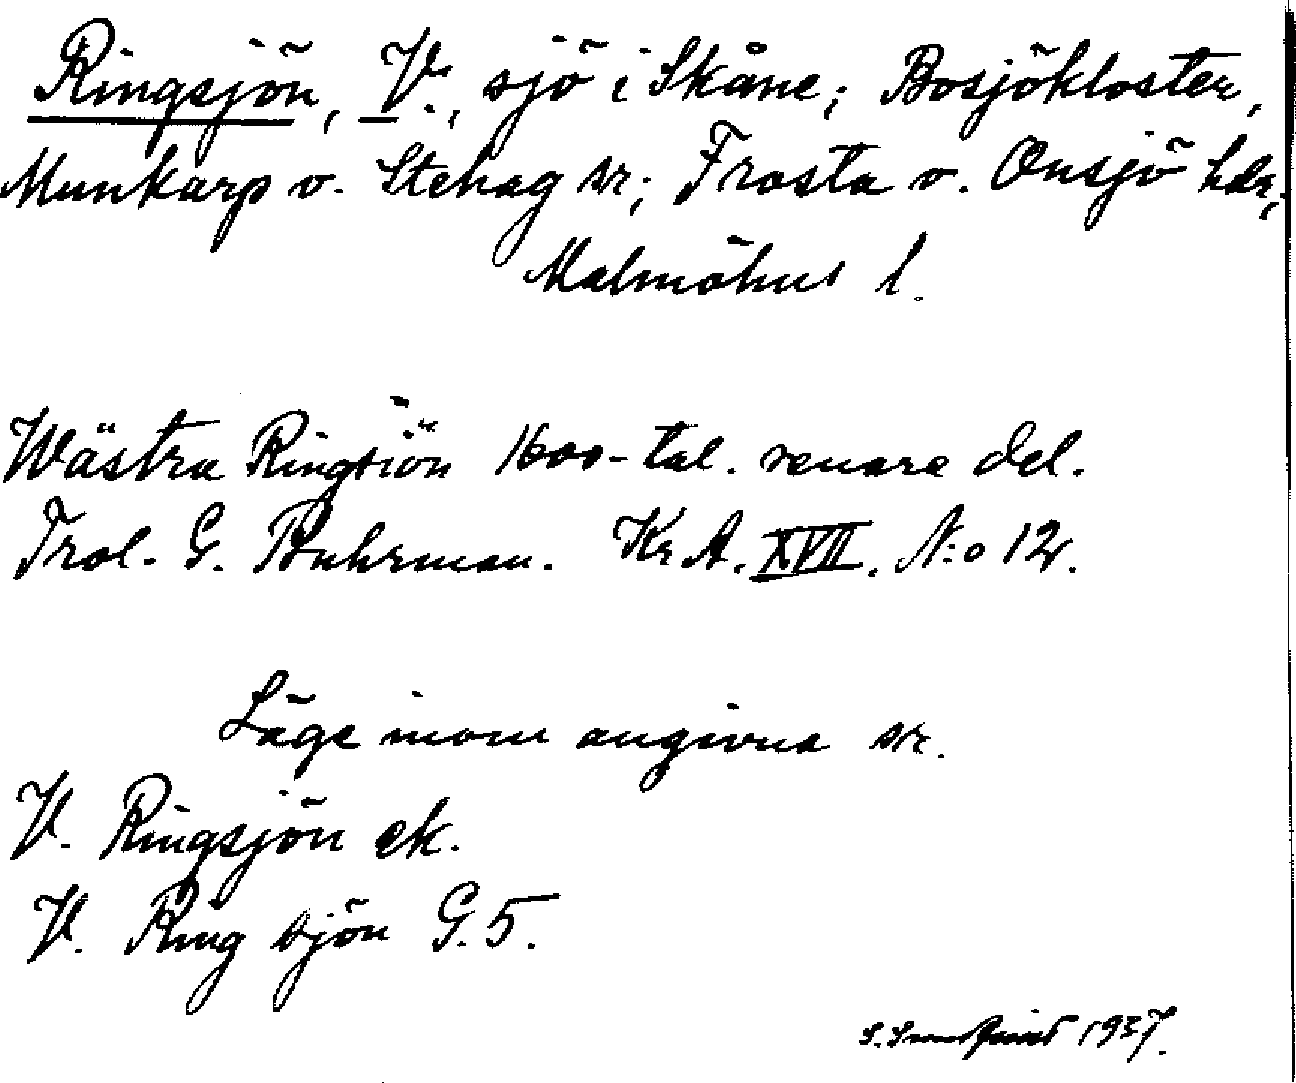 Ringsjön, V., sjö i Skåne; Bosjökloster,
Munkarp o. Stehag sr; Frosta o. Onsjö hdr,
Malmöhus l.
Wästra Ringsiön 1600-tal. senare del.
Trol. G. Buhrman. Kr A. XVII. N:o 12.
Läge inom angivna sr.
V. Ringsjön ek.
V. Ring sjön G. 5.
1937.